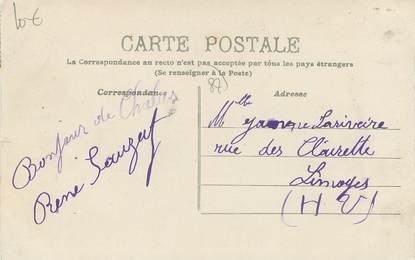 10€
CARTE POSTALE
La Correspondance au recto n'est pas acceptée par tous les pays étrangers
(Se renseigner à la Poste)
87)
Correspondance
Adresse
Bonjour de Chalus
René
Mlle Lariveire
rue des Clairette
Limoges
(H V)